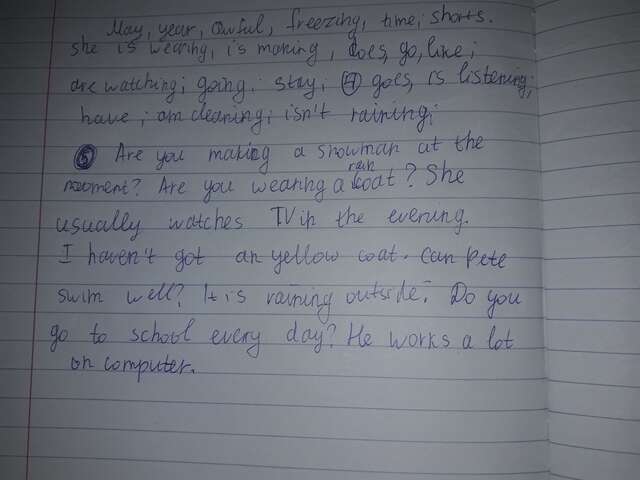 May, year, awful, freezing, time, shorts.
she is wearing, is making, does, go, like;
are watching; going; stay; ④ goes, is listening;
have; am cleaning; isn't raining;
⑤ Are you making a snowman at the
moment? Are you wearing a rain coat? She
usually watches TV in the evening.
I haven't got an yellow coat. Can Pete
swim well? It is raining outside. Do you
go to school every day? He works a lot
on computer.